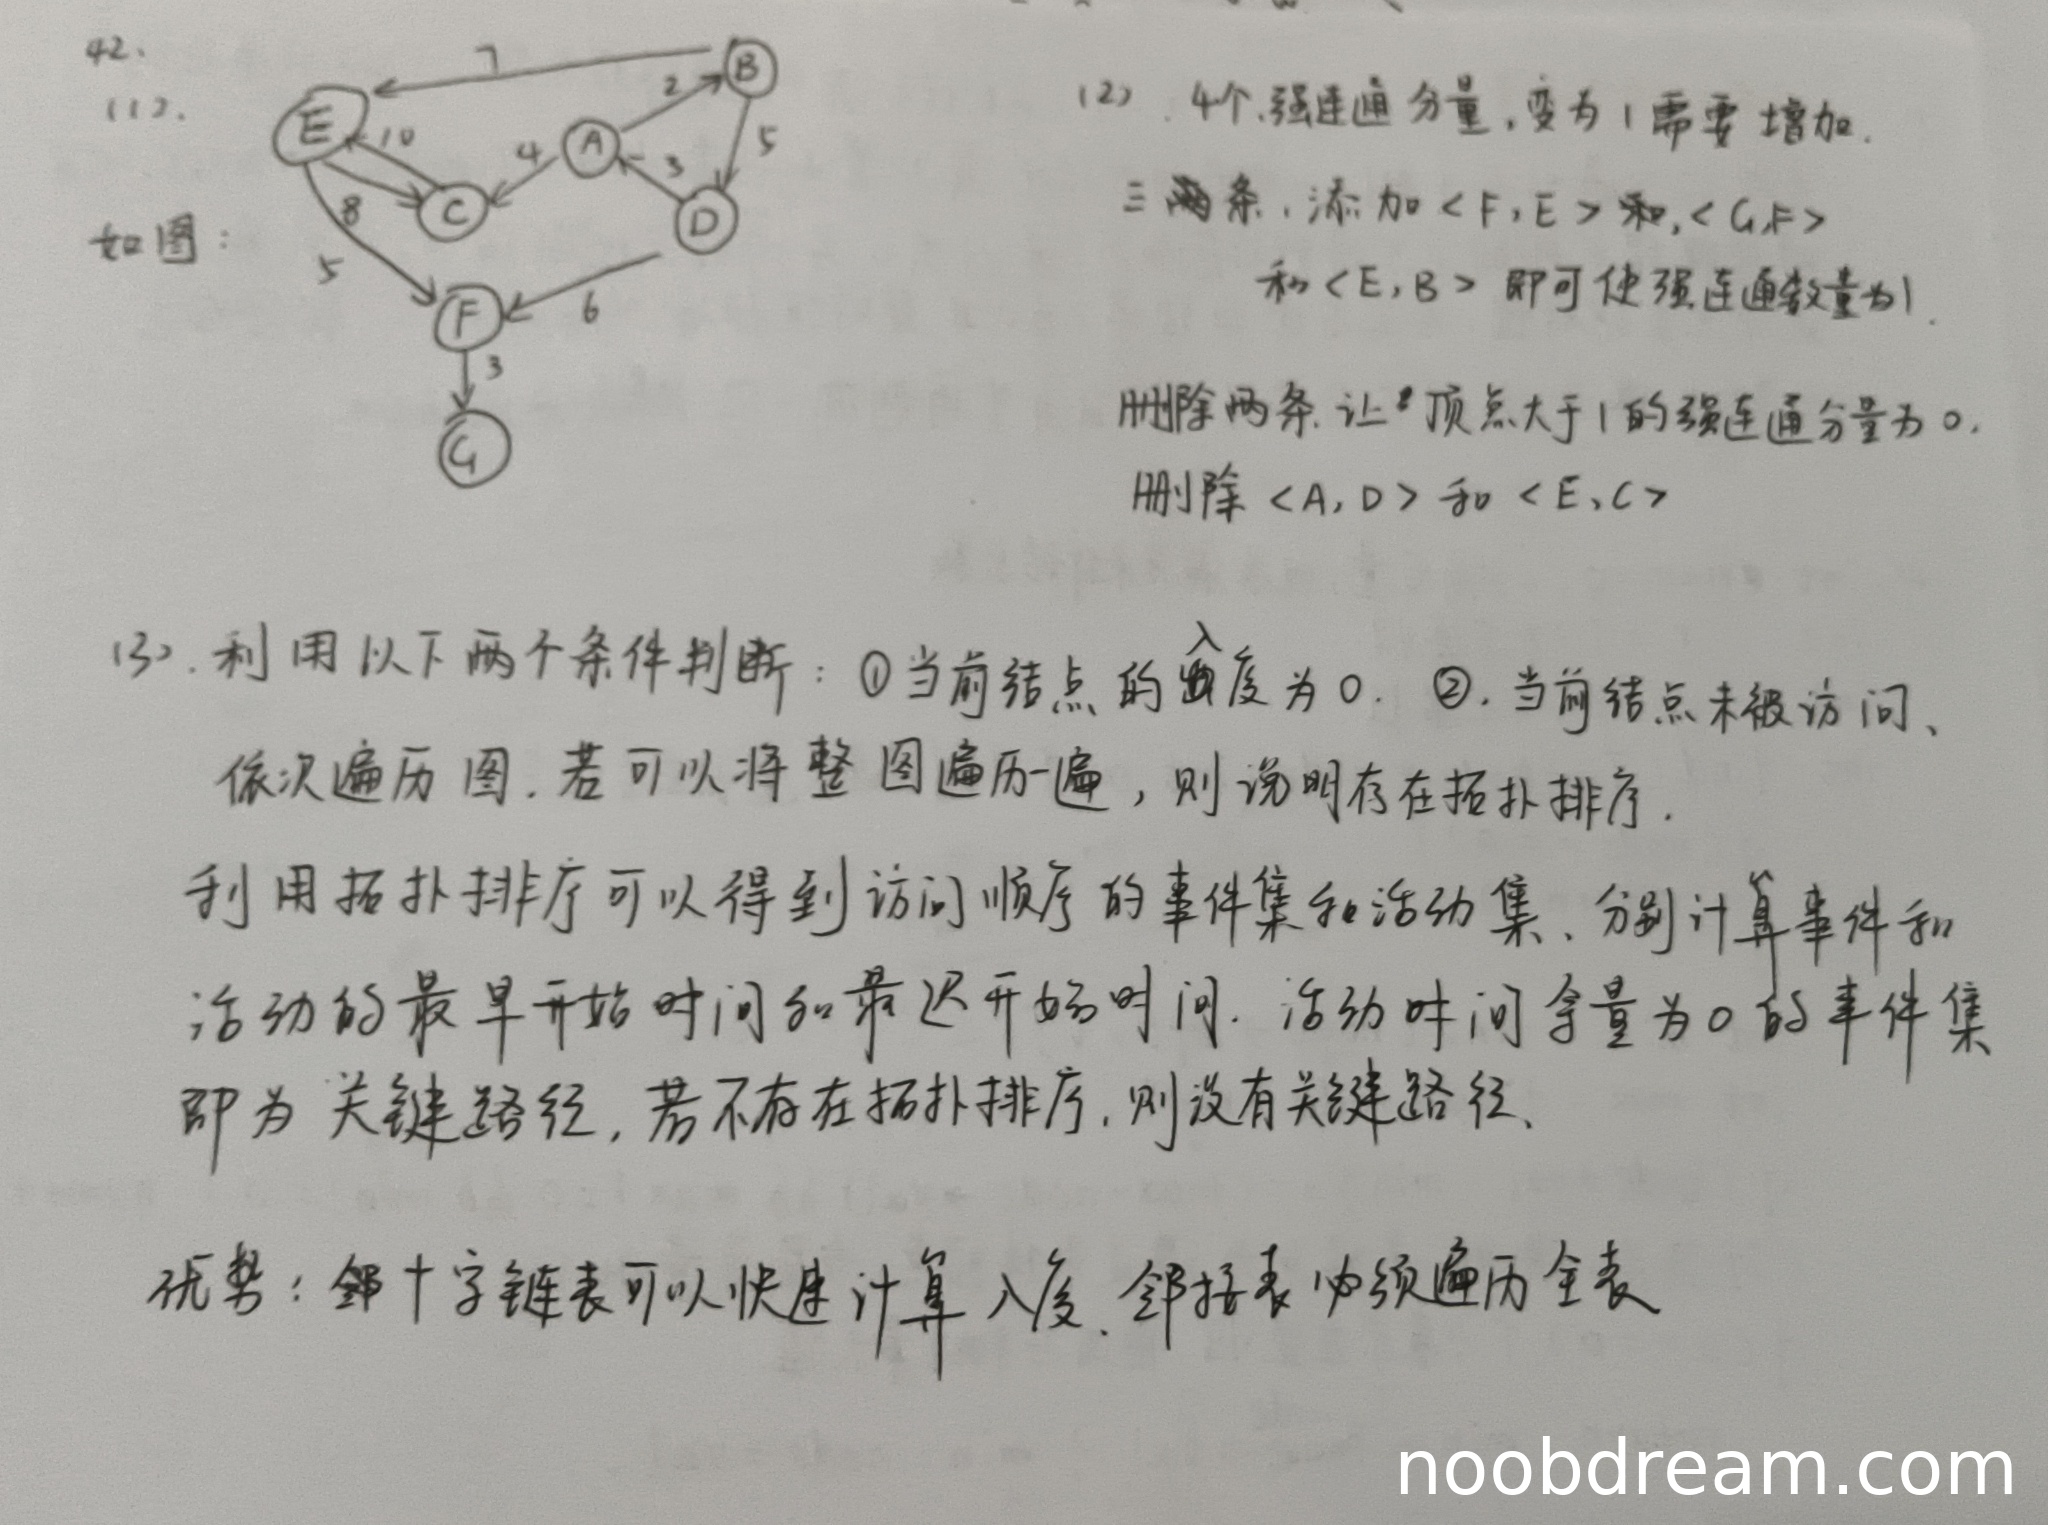 42、
(1).
如图：
E
B
A
C
D
F
G
7
2
5
10
4
3
8
5
6
3
(2). 4个强连通分量，变为1需要增加.
三条，添加<F,E>，<G,F>
和<E,B>即可使强连通数量为1.
删除两条.让顶点大于1的强连通分量为0.
删除<A,D>和<E,C>
(3).利用以下两个条件判断：①当前结点的入度为0. ②.当前结点未被访问、
依次遍历图.若可以将整图遍历一遍，则说明存在拓扑排序.
利用拓扑排序可以得到访问顺序的事件集和活动集、分别计算事件和
活动的最早开始时间和最迟开始时间.活动时间余量为0的事件集
即为关键路径，若不存在拓扑排序，则没有关键路径、
优势：十字链表可以快速计算入度、邻接表必须遍历全表
noobdream.com